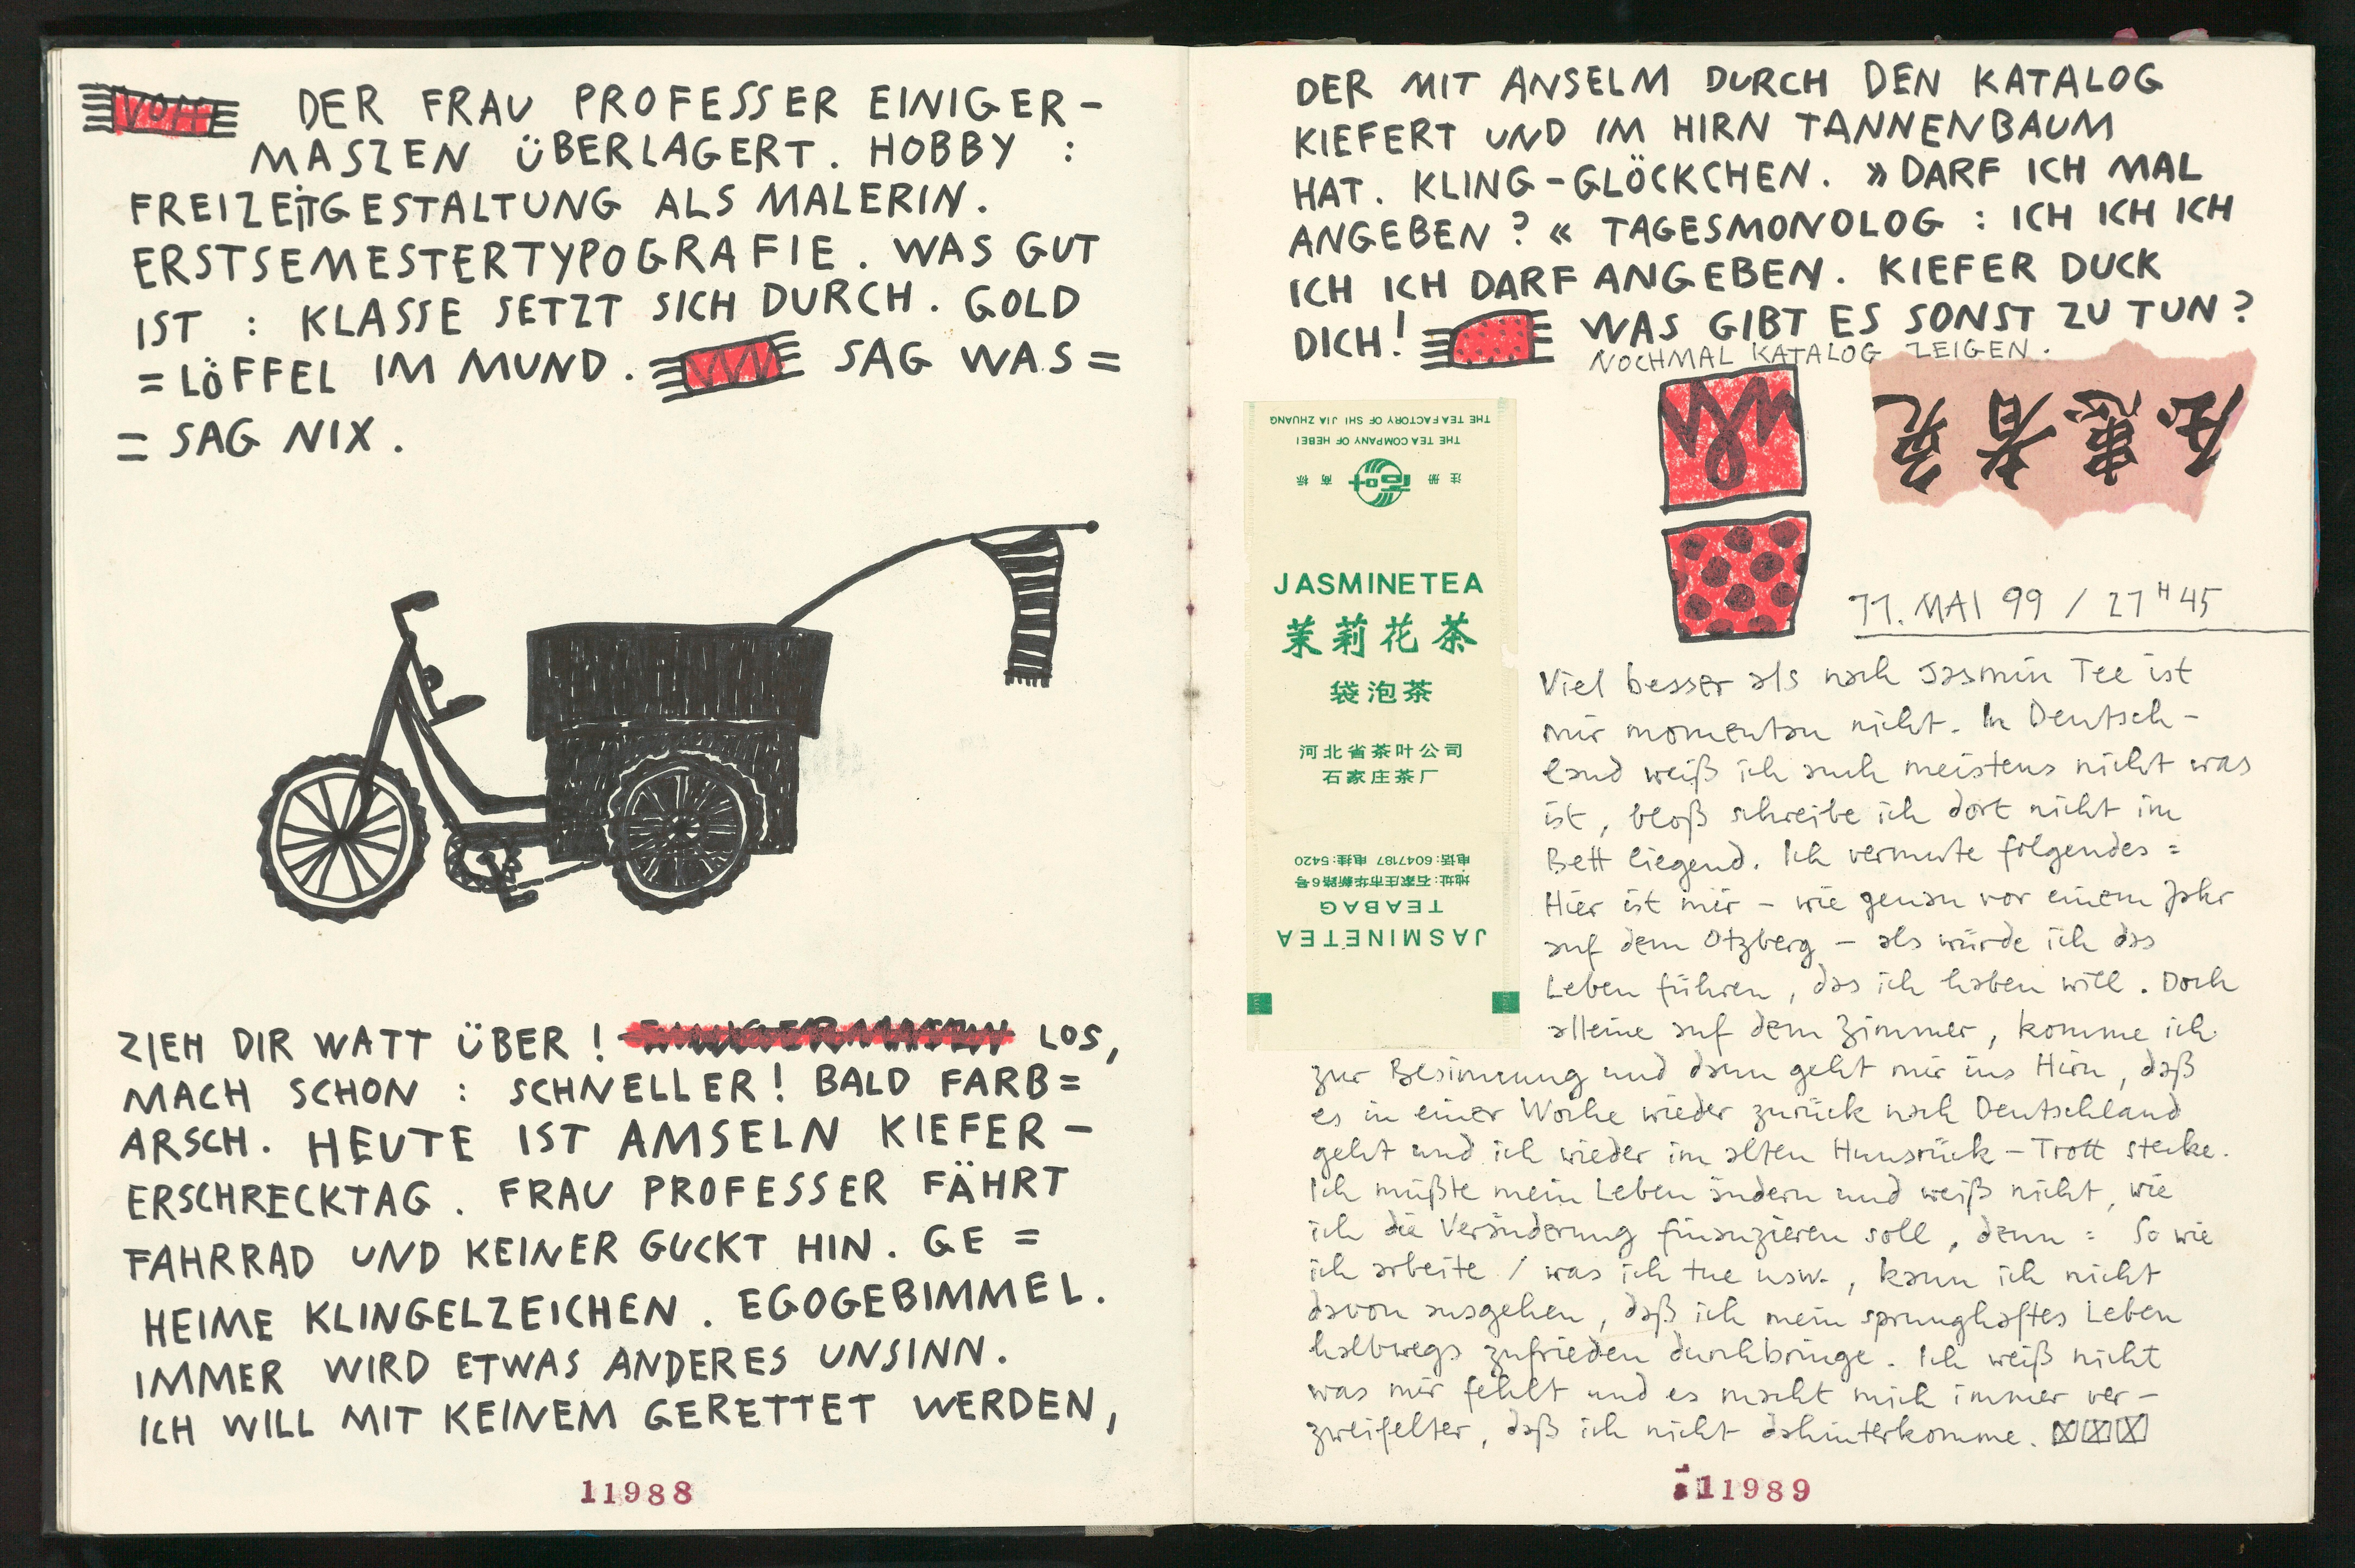 DER FRAU PROFESSER EINIGER-
MASZEN ÜBERLAGERT. HOBBY :
FREIZEITGESTALTUNG ALS MALERIN.
ERSTSEMESTERTYPOGRAFIE. WAS GUT
IST : KLASSE SETZT SICH DURCH. GOLD
=LÖFFEL IM MUND. SAG WAS=
= SAG NIX.
ZIEH DIR WATT ÜBER! LOS,
MACH SCHON : SCHNELLER! BALD FARB=
ARSCH. HEUTE IST AMSELN KIEFER-
ERSCHRECKTAG. FRAU PROFESSER FÄHRT
FAHRRAD UND KEINER GUCKT HIN. GE=
HEIME KLINGELZEICHEN. EGOGEBIMMEL.
IMMER WIRD ETWAS ANDERES UNSINN.
ICH WILL MIT KEINEM GERETTET WERDEN,
11988
DER MIT ANSELM DURCH DEN KATALOG
KIEFERT UND IM HIRN TANNENBAUM
HAT. KLING-GLÖCKCHEN. »DARF ICH MAL
ANGEBEN?« TAGESMONOLOG : ICH ICH ICH
ICH ICH DARF ANGEBEN. KIEFER DUCK
DICH! WAS GIBT ES SONST ZU TUN?
NOCHMAL KATALOG ZEIGEN.
THE TEA FACTORY OF SHI JIA ZHUANG
THE TEA COMPANY OF HEBEI
注册 商标
JASMINETEA
茉莉花茶
袋泡茶
河北省茶叶公司
石家庄茶厂
电话:6047187 电挂:5420
地址:石家庄市华新路6号
TEABAG
JASMINETEA
11. MAI 99 / 21H45
Viel besser als nach Jasmin Tee ist
mir momentan nicht. In Deutsch-
land weiß ich auch meistens nicht was
ist, bloß schreibe ich dort nicht im
Bett liegend. Ich vermute folgendes:
Hier ist mir – wie genau vor einem Jahr
auf dem Otzberg – als würde ich das
Leben führen, das ich haben will. Doch
alleine auf dem Zimmer, komme ich
zur Besinnung und dann geht mir ins Hirn, daß
es in einer Woche wieder zurück nach Deutschland
geht und ich wieder im alten Hunsrück-Trott stecke.
Ich müßte mein Leben ändern und weiß nicht, wie
ich die Veränderung finanzieren soll, denn: So wie
ich arbeite / was ich tue usw., kann ich nicht
davon ausgehen, daß ich mein sprunghaftes Leben
halbwegs zufrieden durchbringe. Ich weiß nicht
was mir fehlt und es macht mich immer ver-
zweifelter, daß ich nicht dahinterkomme.
11989